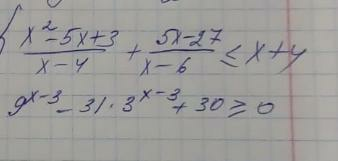 { (x² - 5x + 3)/(x - 4) + (5x - 27)/(x - 6) ≤ x + 4
9^(x-3) - 31 · 3^(x-3) + 30 ≥ 0